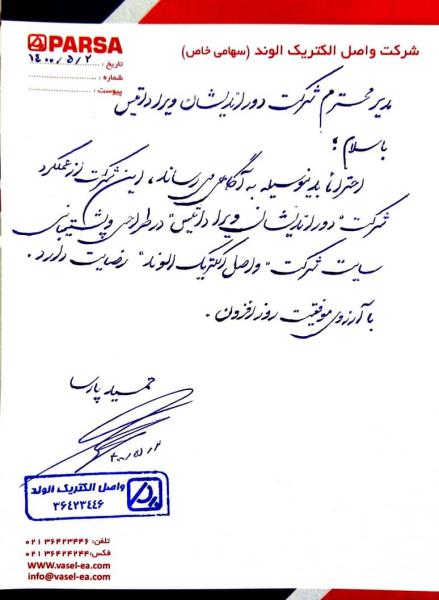 PARSA
شرکت واصل الکتریک الوند (سهامی خاص)
تاریخ : ۱۴۰۰/۵/۲
شماره :
پیوست :
مدیر محترم شرکت دوراندیشان ویرا داتیس
با سلام ؛
احتراماً بدینوسیله به آگاهی می رساند ، این شرکت از عملکرد
شرکت "دوراندیشان ویرا داتیس" در طراحی و پشتیبانی
سایت شرکت "واصل الکتریک الوند" رضایت دارد .
با آرزوی موفقیت روز افزون .
حمید پارسا
واصل الکتریک الوند
۳۶۴۲۳۴۴۶
تلفن: ۰۲۱ ۳۶۴۲۳۴۴۶
فکس: ۰۲۱ ۳۶۴۲۴۲۴۴
www.vasel-ea.com
info@vasel-ea.com